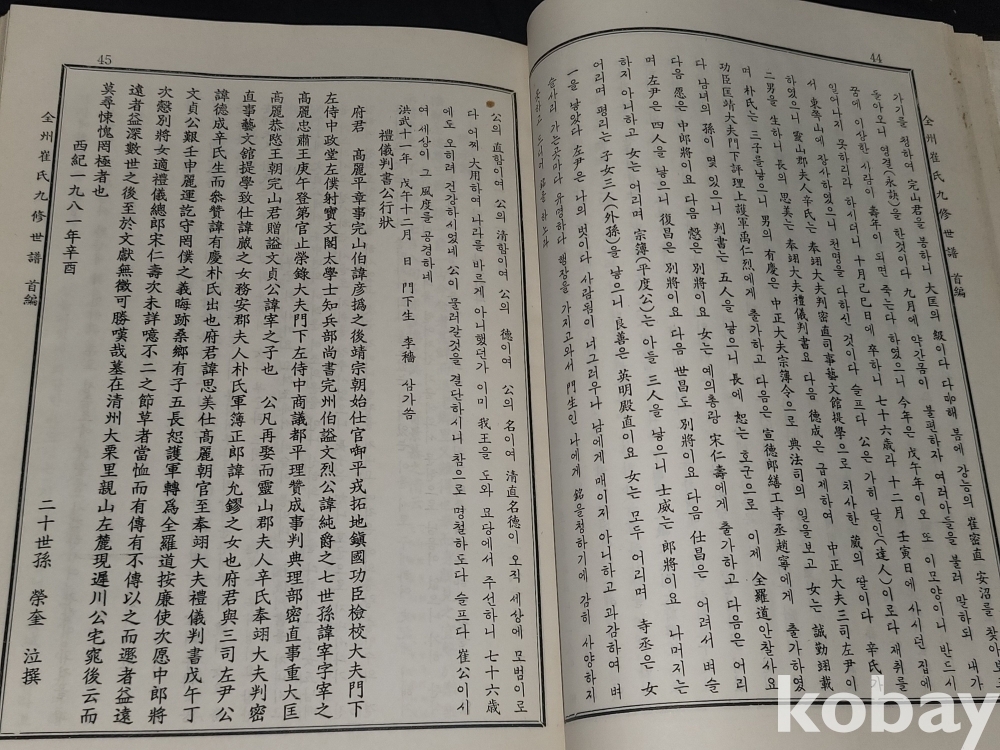 44
全州崔氏九修世譜 首編
가기를 청하여 完山君을 봉하니 大匡의 級이다 다음해 봄에 강능의 崔密直 安沼를
돌아오니 영결(永訣)을 한것이다 九月에 약간몸이 불편하자 여러아들을 불러 말하되 내가
꿈에 이상한 사람이 壽年이 되면 죽는다 하였으니 今年은 戊午年이요 또 이모양이니 반드시
일어나지 못하리라 하시더니 十月己巳日에 卒하니 七十六歲라 十二月 壬寅日에 사시던 집에
서 東쪽山에 장사하였으니 천명을 다하신 것이다 슬프다 公은 가히 달인(達人)이로다 재취를
하였으니 靈山郡夫人辛氏는 奉翊大夫判密直司事藝文館提學으로 치사한 蕆의 딸이다 辛氏가
二男을 生하니 長의 思美는 奉翊大夫禮儀判書요 다음 德成은 급제하여 中正大夫三司左尹이
며 朴氏는 三子를낳으니 男의 有慶은 中正大夫宗簿令으로 典法司의 일을보고 女는 誠勤翊戴
功臣匡靖大夫門下評理上護軍禹仁烈에게 출가하고 다음은 宣德郎繕工寺丞趙寧에게 출가하였
다 남녀의 孫이 몇 있으니 判書는 五人을 낳으니 長에 恕는 호군으로 이제 全羅道안찰사요
다음 愿은 中郎將이요 다음 慤은 別將이요 女는 예의총랑 宋仁壽에게 출가하고 다음은 어리
며 左尹은 四人을 낳으니 復昌은 別將이요 다음 世昌도 別將이요 다음 仕昌은 어려서 벼슬
하지 아니하고 女는 어리며 宗簿(平度公)는 아들 三人을 낳으니 士威는 郎將이요 나머지는
어리며 評理는 子女三人(外孫)을 낳으니 良善은 英明殿直이요 女는 모두 어리며 寺丞은 女
一을 낳았다 左尹은 나의 벗이다 사람됨이 너그러우나 남에게 매이지 아니하고 과감하여 벼
슬사리 가는곳마다 유명하다 행장을 가지고와서 門生인 나에게 銘을청하기에 감히 사양하지
못하고 드디어 銘을 하노라
45
公의 直함이여 公의 清함이여 公의 德이여 公의 名이여 清直名德이 오직 세상에 모범이로
다 어찌 大用하여 나라를 바르게 아니했던가 이미 我王을 도와 묘당에서 주선하니 七十六歲
에도 오히려 건강하시었네 公이 물러갈것을 결단하시니 참으로 명철하도다 슬프다 崔公이시
여 세상이 그 風度를 공경하네
洪武十一年 戊午十二月 日 門下生 李穡 삼가씀
禮儀判書公行狀
府君 高麗平章事完山伯諱彦撝之後靖宗朝始仕官御平戎拓地鎭國功臣檢校大夫門下
左侍中政堂左僕射寶文閣太學士知兵部尚書完州伯謚文烈公諱純爵之七世孫諱宰字宰之
高麗忠肅王庚午登第官止榮錄大夫門下左侍中商議都平理贊成事判典理部密直事重大匡
高麗恭愍王朝完山君贈謚文貞公諱宰之子也 公凡再娶而靈山郡夫人辛氏奉翊大夫判密
直事藝文舘提學致仕諱蕆之女務安郡夫人朴氏軍簿正郎諱允鏐之女也府君與三司左尹公
諱德成辛氏生而叅贊諱有慶朴氏出也府君諱思美仕高麗朝官至奉翊大夫禮儀判書戊午丁
文貞公艱壬申麗運訖守罔僕之義晦跡桑鄉有子五長恕護軍轉爲全羅道按廉使次愿中郎將
次慤別將女適禮儀總郎宋仁壽次未詳噫不二之節草者當恤而有傳有不傳以之而遯者益遠
遠者益深數世之後至於文獻無徵可勝嘆哉墓在清州大栗里親山左麓現遲川公宅窕後云而
莫尋悚愧罔極者也
西紀一九八一年辛酉
二十世孫 榮奎 泣撰
全州崔氏九修世譜 首編
kobay